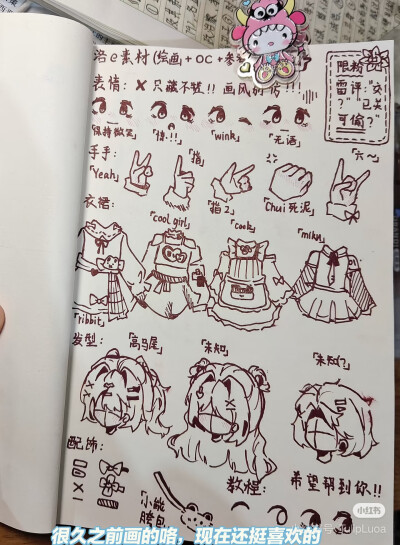 洛e素材(绘画+OC+参
表情: ✗只藏不赞!! 画风别仿!!
限粉
雷评:"交
?""已关
可偷?"
「保持微笑」
「惊!!」
「wink」
「无语」
手手:
「Yeah」
「指」
「指2」
「Chui死泥」
「六~」
衣裙:
「ribbit」
「cool girl」
「cook」
「miku」
发型:
「高马尾」
「未知」
「未知2」
配饰:
「小熊
挎包
教程:
希望帮到你!!
小红书
很久之前画的咯，现在还挺喜欢的